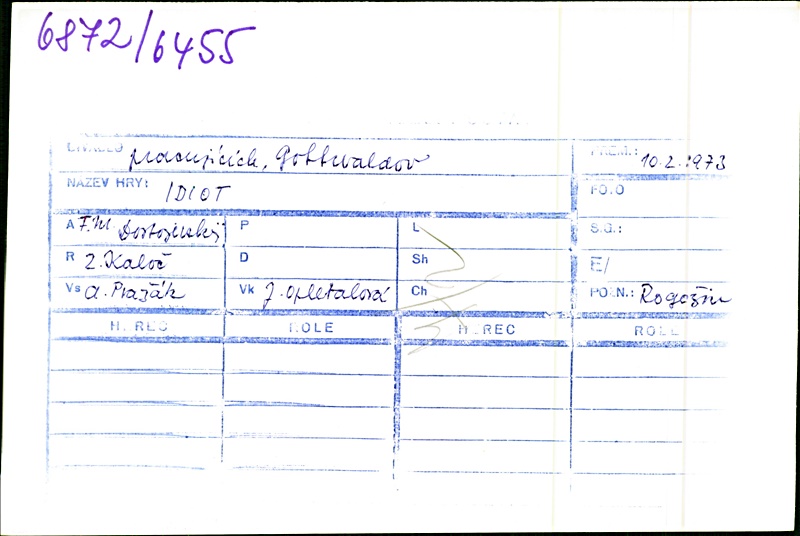 6872/6455
DIVADLO pracujících, Gottwaldov PREM.: 10.2.1973
NÁZEV HRY: IDIOT FO.O
A F.M Dostojevskij P L S.G.:
R Z. Kaloč D Sh E/
Vs A. Pražák Vk J. Opletalová Ch POZN.: Rogožin
HEREC ROLE HEREC ROLE